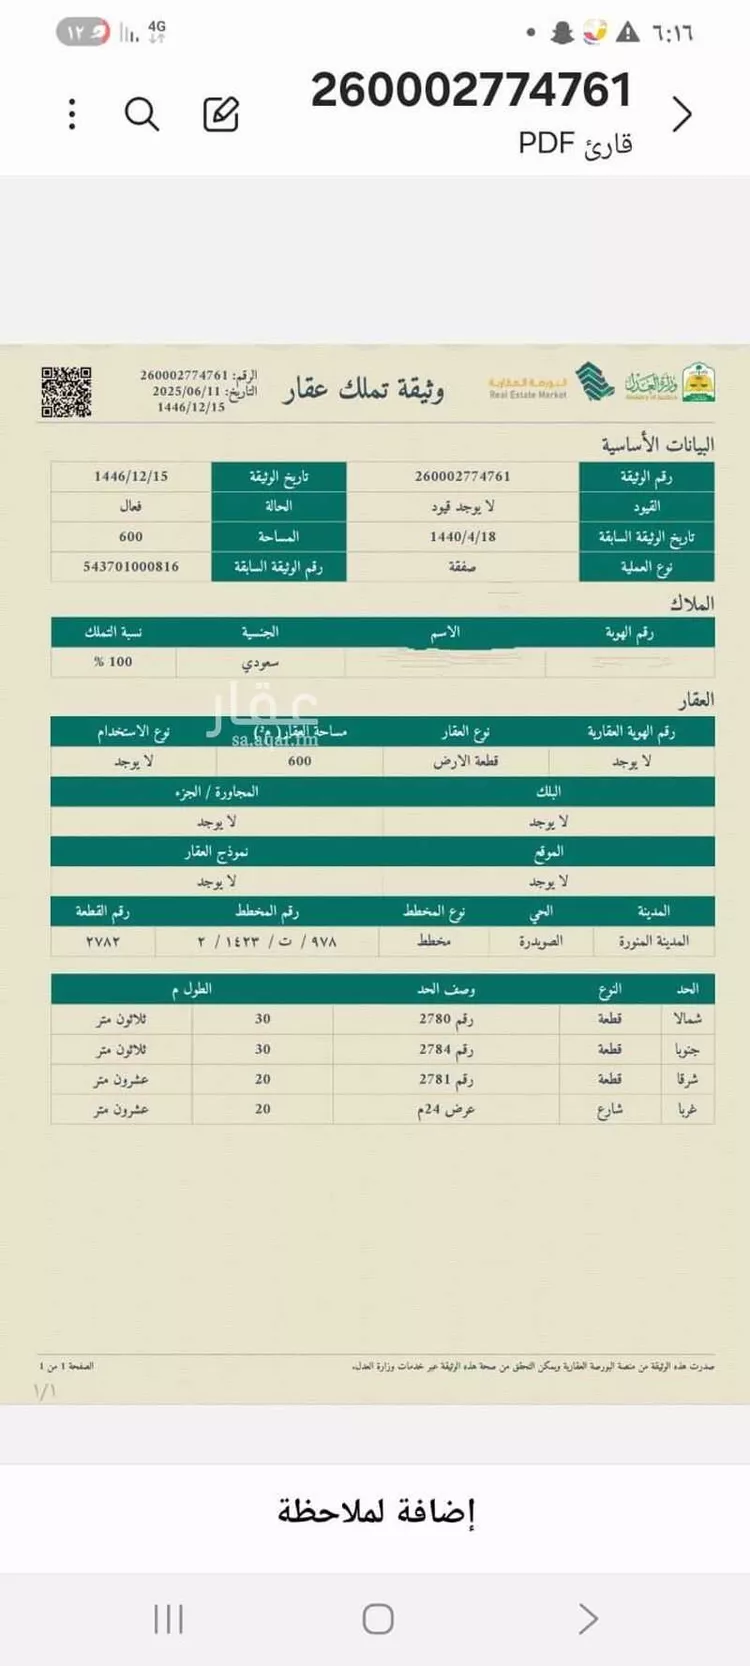 ٦:١٦
4G
١٢
260002774761
قارئ PDF
وزارة العدل
Ministry of Justice
البورصة العقارية
Real Estate Market
وثيقة تملك عقار
الرقم: 260002774761
التاريخ: 2025/06/11
1446/12/15
البيانات الأساسية
رقم الوثيقة 260002774761 تاريخ الوثيقة 1446/12/15
القيود لا يوجد قيود الحالة فعال
تاريخ الوثيقة السابقة 1440/4/18 المساحة 600
نوع العملية صفقة رقم الوثيقة السابقة 543701000816
الملاك
رقم الهوية الاسم الجنسية نسبة التملك
سعودي 100 %
العقار
عقار
sa.aqar.fm
رقم الهوية العقارية نوع العقار مساحة العقار( م²) نوع الاستخدام
لا يوجد قطعة الارض 600 لا يوجد
البلك المجاورة / الجزء
لا يوجد لا يوجد
الموقع نموذج العقار
لا يوجد لا يوجد
المدينة الحي نوع المخطط رقم المخطط رقم القطعة
المدينة المنورة الصويدرة مخطط ٩٧٨ / ت / ١٤٢٣ / ٢ ٢٧٨٢
الحد النوع وصف الحد الطول م
شمالا قطعة رقم 2780 30 ثلاثون متر
جنوبا قطعة رقم 2784 30 ثلاثون متر
شرقا قطعة رقم 2781 20 عشرون متر
غربا شارع عرض 24م 20 عشرون متر
صدرت هذه الوثيقة من منصة البورصة العقارية ويمكن التحقق من صحة هذه الوثيقة عبر خدمات وزارة العدل.
الصفحة 1 من 1
١/١
إضافة لملاحظة